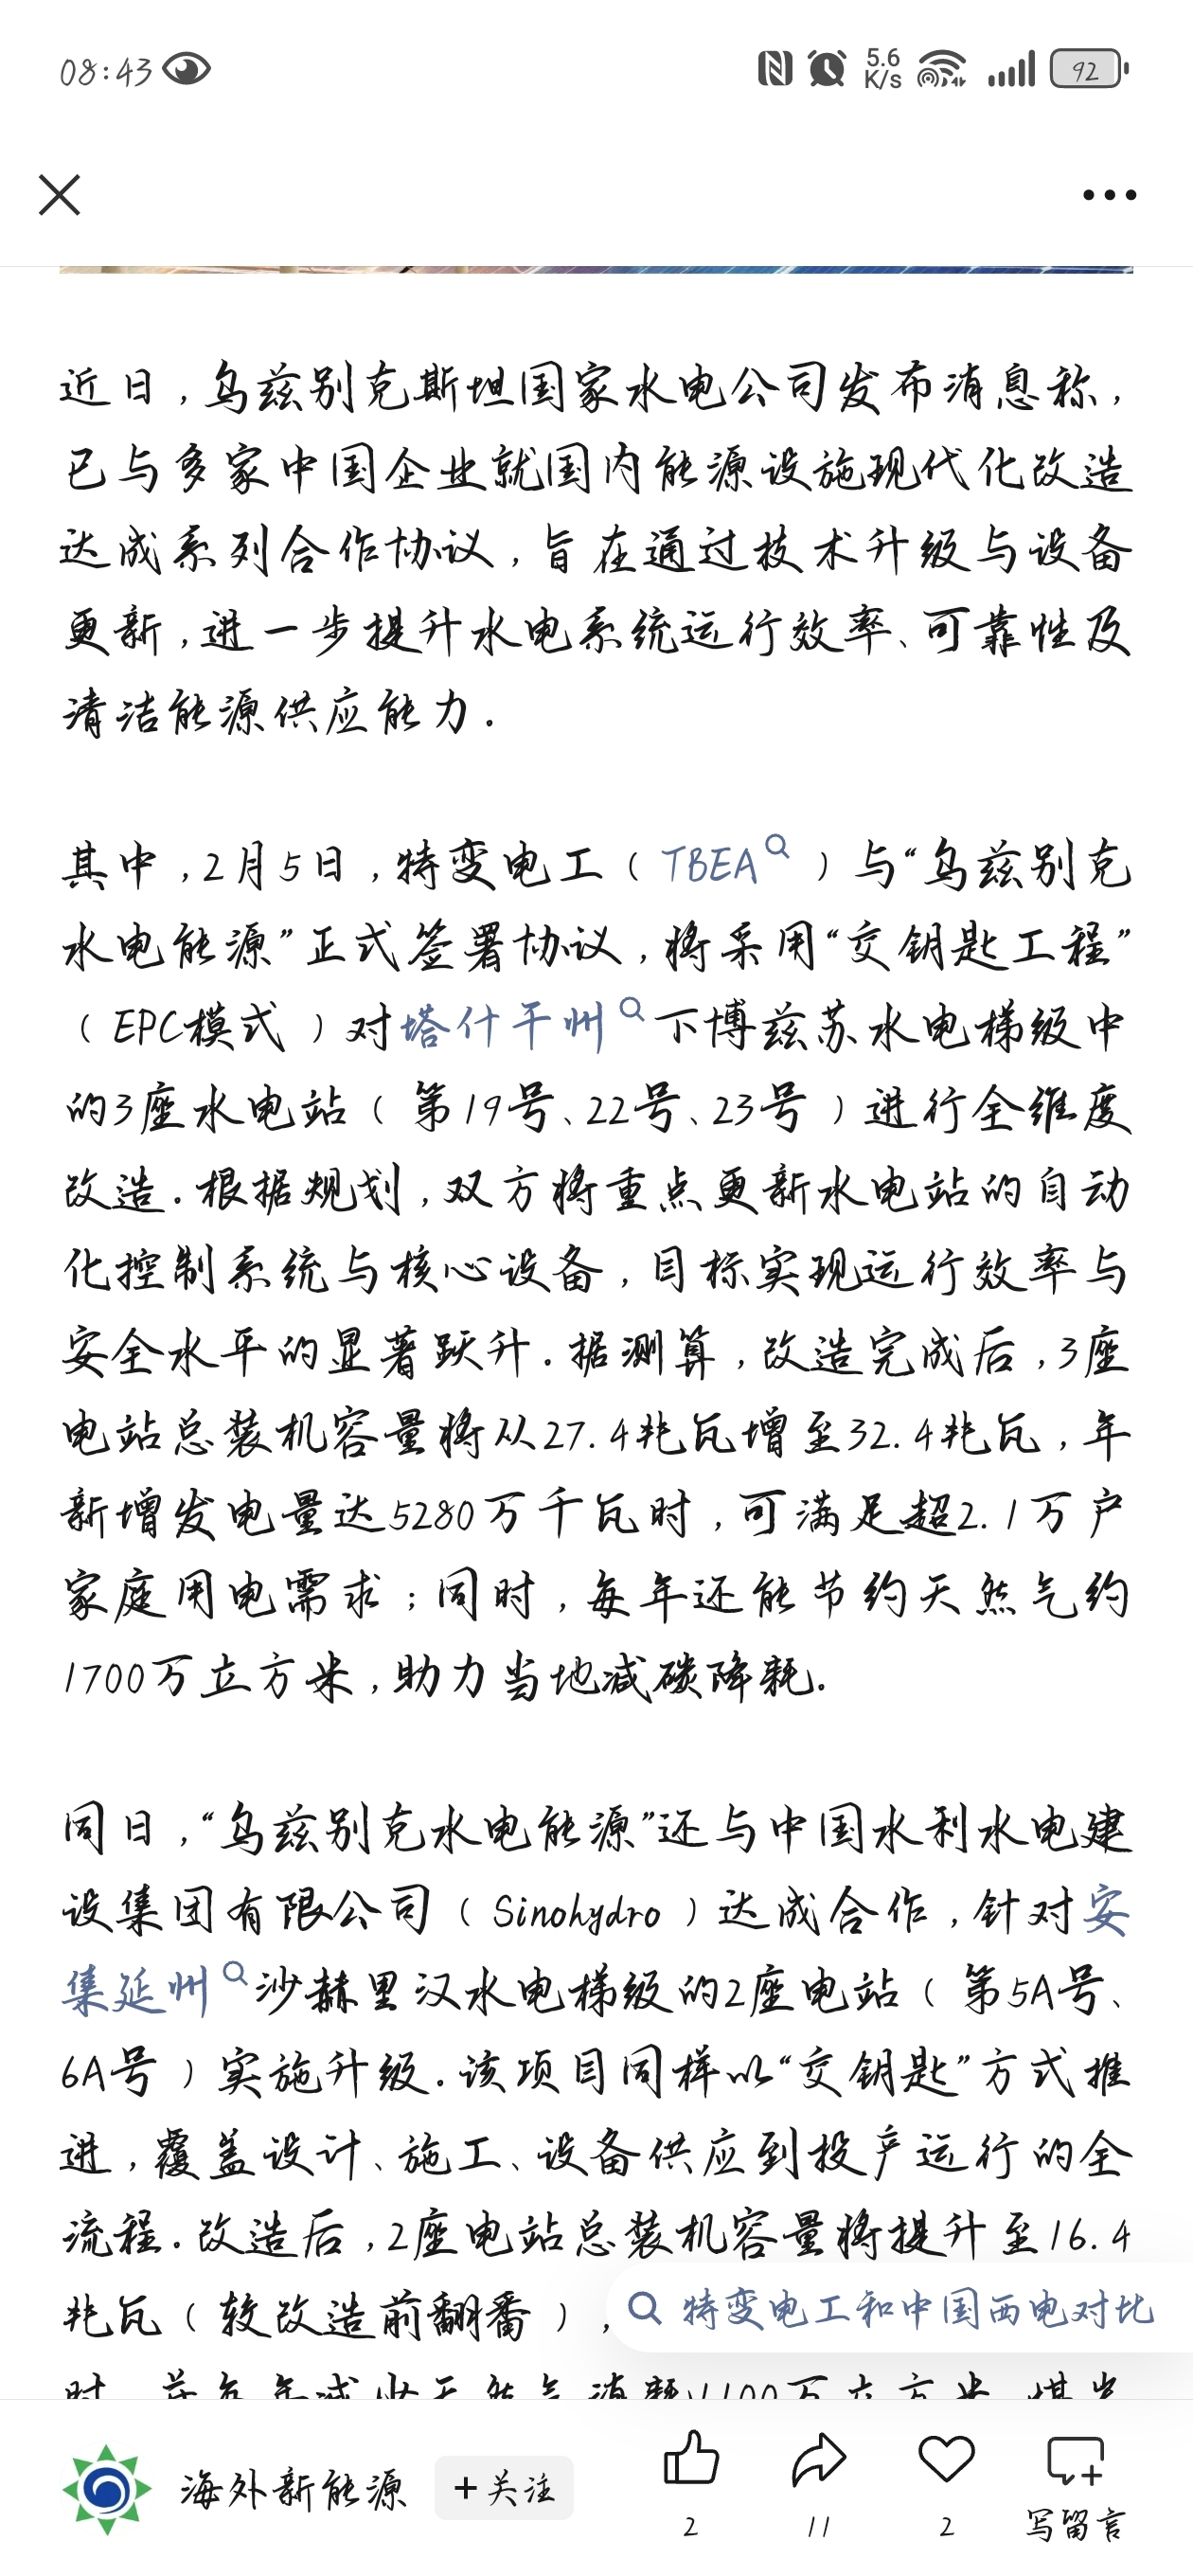 08:43
5.6
K/s
92
近日，乌兹别克斯坦国家水电公司发布消息称，
已与多家中国企业就国内能源设施现代化改造
达成系列合作协议，旨在通过技术升级与设备
更新，进一步提升水电系统运行效率、可靠性及
清洁能源供应能力。
其中，2月5日，特变电工（TBEA）与“乌兹别克
水电能源”正式签署协议，将采用“交钥匙工程”
（EPC模式）对塔什干州下博兹苏水电梯级中
的3座水电站（第19号、22号、23号）进行全维度
改造。根据规划，双方将重点更新水电站的自动
化控制系统与核心设备，目标实现运行效率与
安全水平的显著跃升。据测算，改造完成后，3座
电站总装机容量将从27.4兆瓦增至32.4兆瓦，年
新增发电量达5280万千瓦时，可满足超2.1万户
家庭用电需求；同时，每年还能节约天然气约
1700万立方米，助力当地减碳降耗。
同日，“乌兹别克水电能源”还与中国水利水电建
设集团有限公司（Sinohydro）达成合作，针对安
集延州沙赫里汉水电梯级的2座电站（第5A号、
6A号）实施升级。该项目同样以“交钥匙”方式推
进，覆盖设计、施工、设备供应到投产运行的全
流程。改造后，2座电站总装机容量将提升至16.4
兆瓦（较改造前翻番），
特变电工和中国西电对比
海外新能源
+关注
2
11
2
写留言